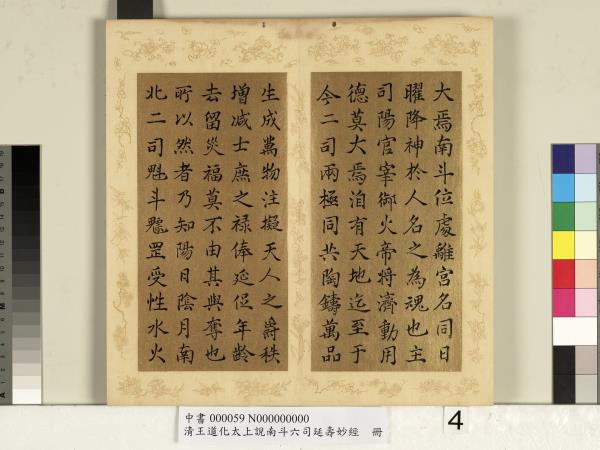 大焉南斗位處離宮名同日
曜降神於人名之為魂也主
司陽官宰御火帝將濟動用
德莫大焉洎有天地迄至于
今二司兩極同共陶鑄萬品
生成萬物注擬天人之爵秩
增減士庶之祿俸延促年齡
去留災福莫不由其與奪也
所以然者乃知陽日陰月南
北二司魁斗魒罡受性水火
中書 000059 N000000000
清王道化太上說南斗六司延壽妙經 冊
4